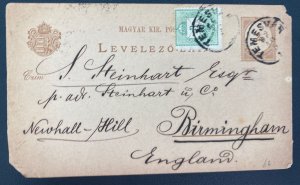 MAGYAR KIR. POSTA
LEVELEZŐ
TEMESVÁR
Czim
S. Steinhart Esqre
p. adr. Steinhart & Co.
Newhall-Hill
Birmingham
England.